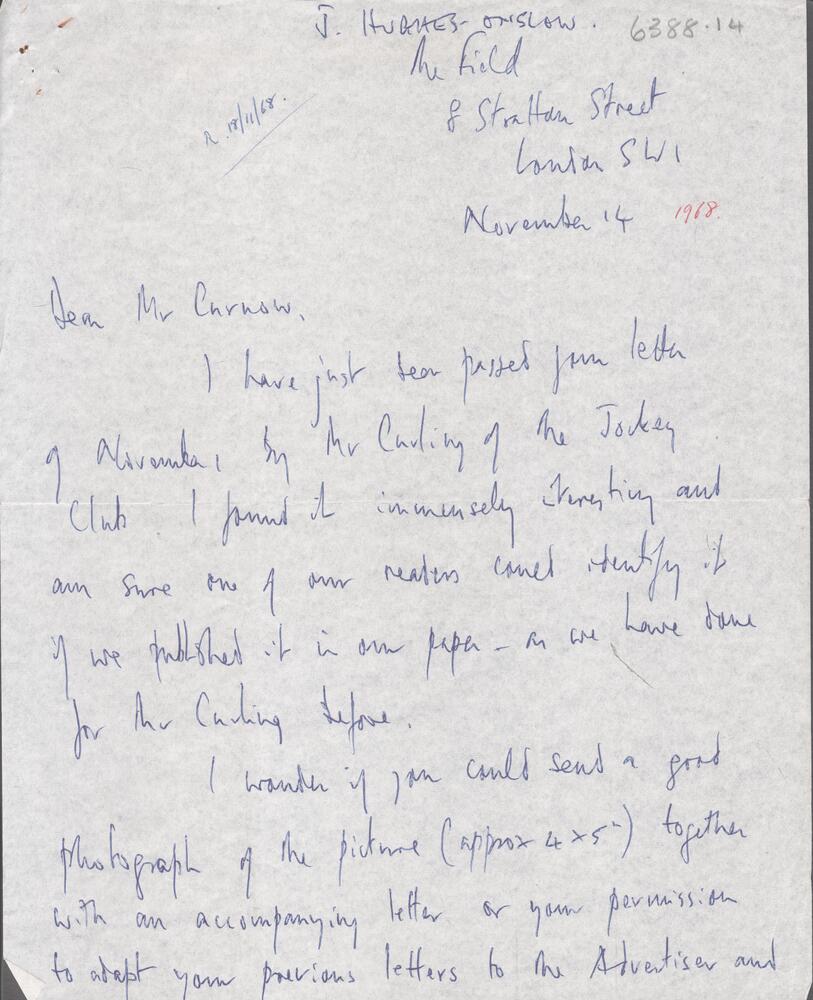 J. HUGHES-ONSLOW. 6388.14
The Field
8 Stratton Street
London SW1
R. 18/11/68.
November 14 1968.
Dear Mr Curnow,
I have just been passed your letter
of November 1 by Mr Curling of the Jockey
Club I found it immensely interesting and
am sure one of our readers could identify it
if we published it in our paper - as we have done
for Mr Curling before.
I wonder if you could send a good
photograph of the picture (approx 4 x 5") together
with an accompanying letter or your permission
to adapt your previous letters to the Advertiser and